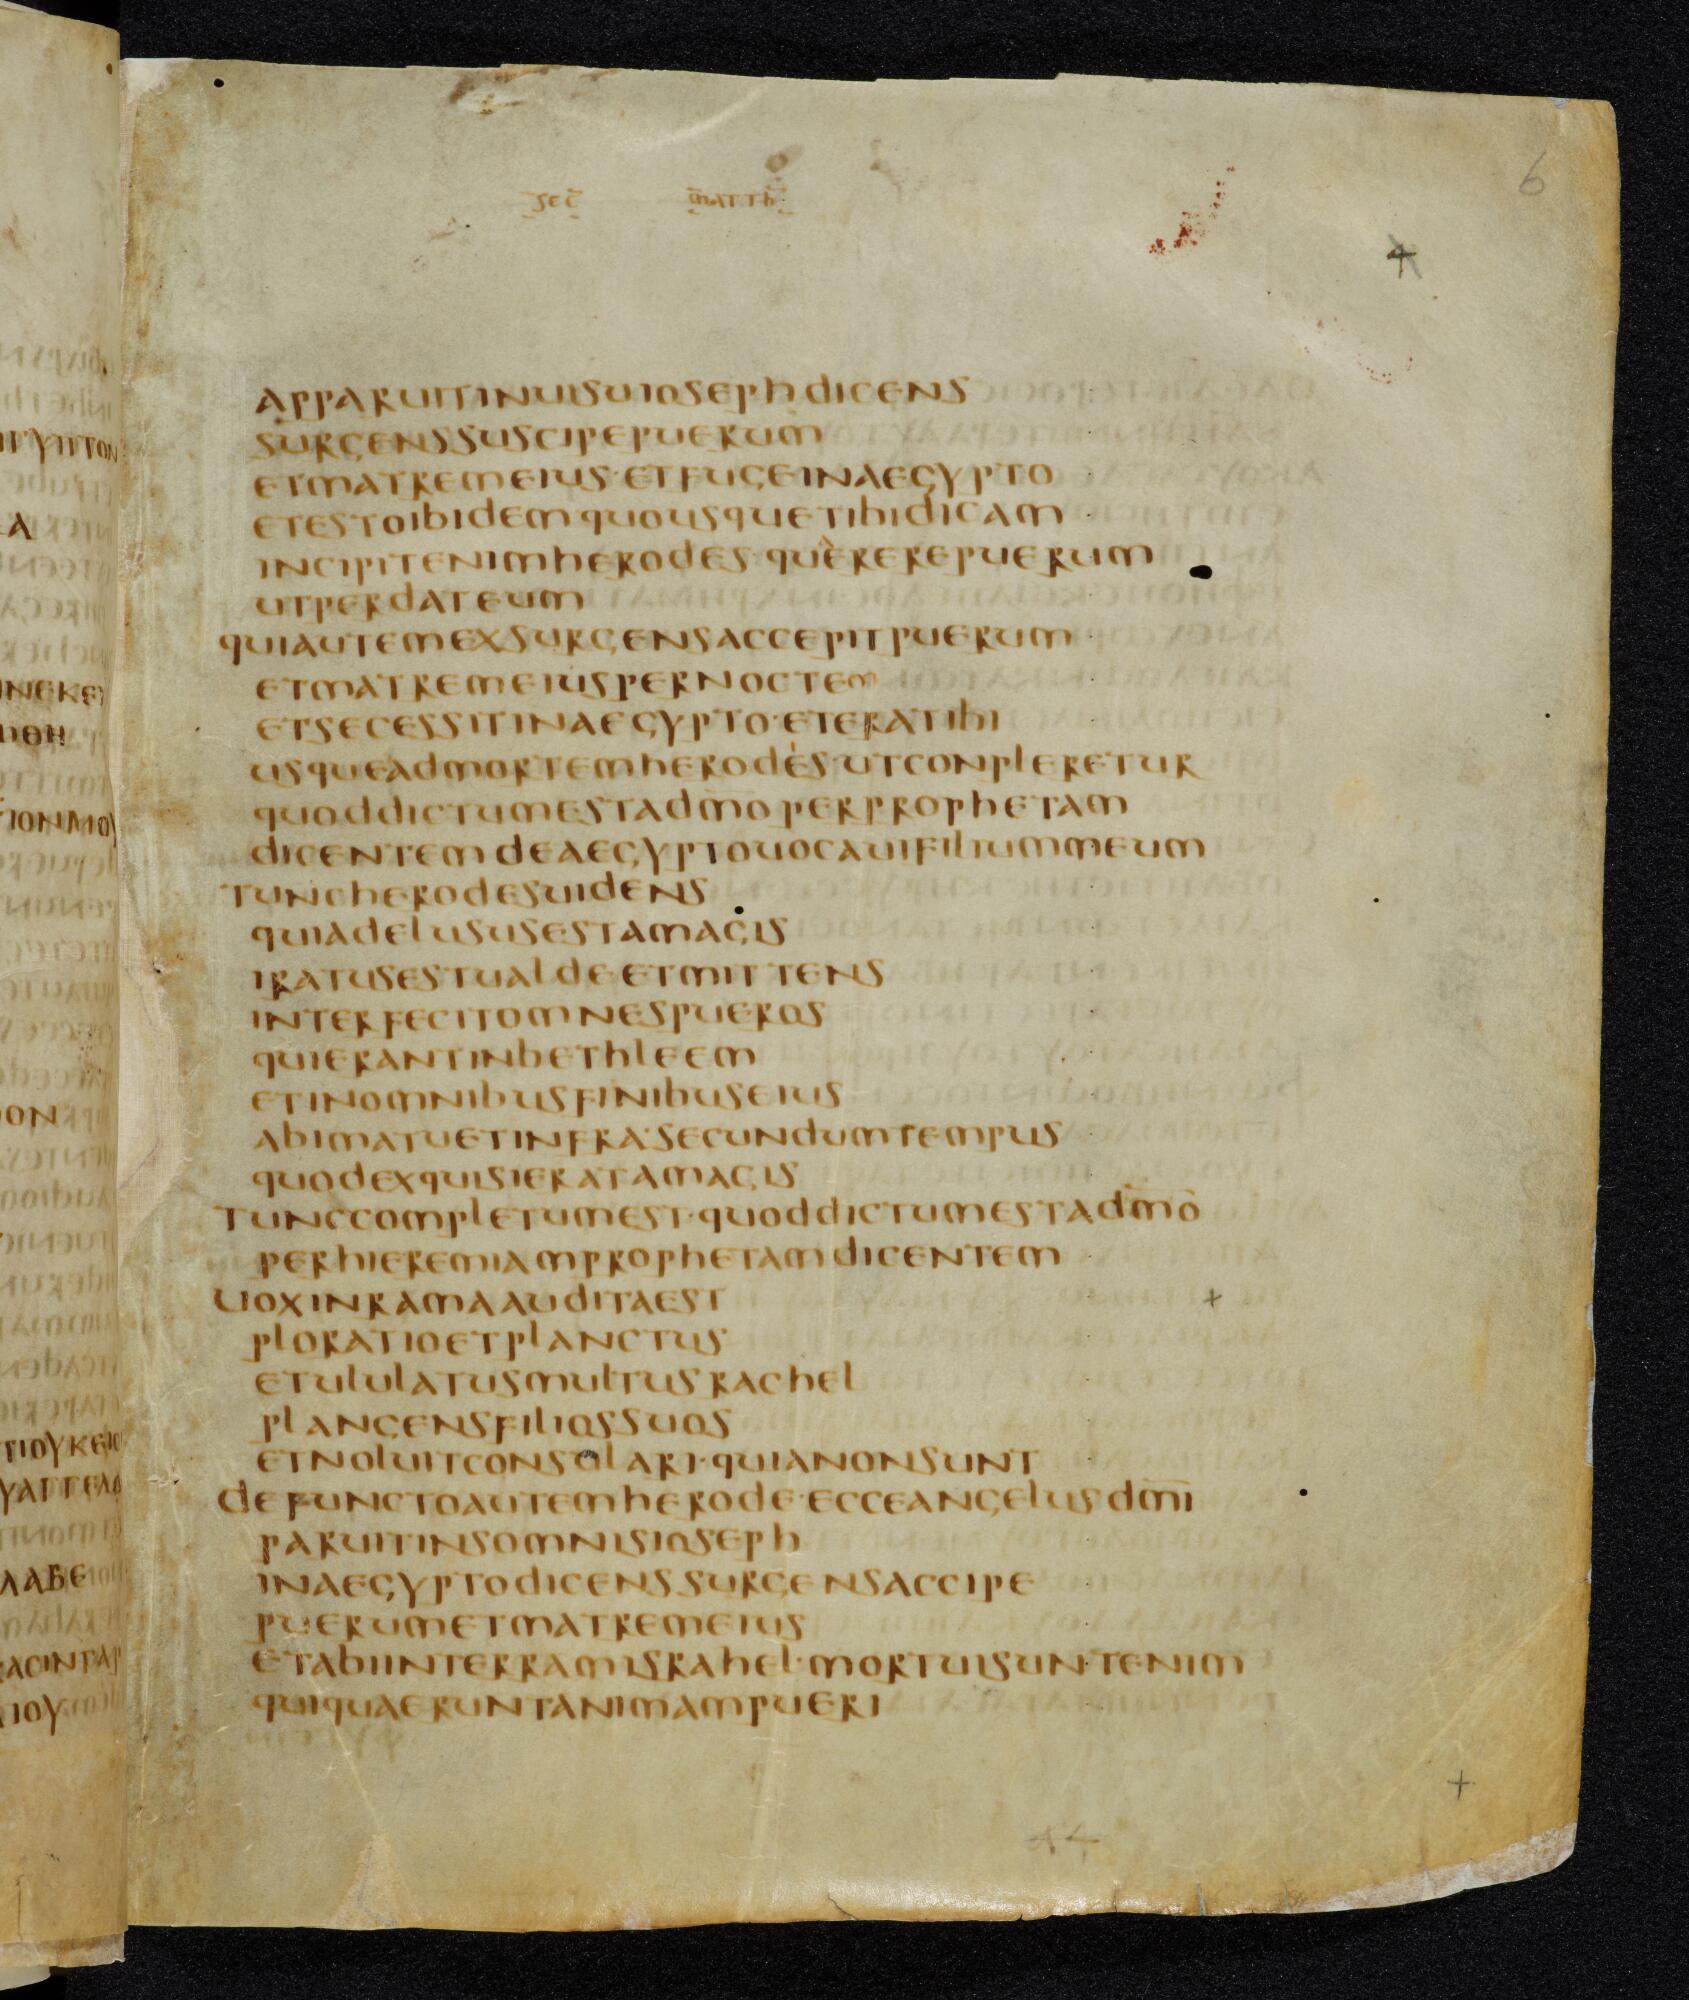 sec̅ m̅atth̅
6
apparuitinuisuiosephdicens
surgenssuscipepuerum
etmatremeius·etfugeinaegypto
etestoibidemquousquetibidicam
incipitenimherodes·quererepuerum
utperdateum
quiautemexsurgensaccepitpuerum
etmatremeiuspernoctem
etsecessitinaegypto·eteratibi
usqueadmortemherodes·utconpleretur
quoddictumestadm̅operprophetam
dicentemdeaegyptouocauifiliummeum
tuncherodesuidens
quiadelususestamagis
iratusestualdeetmittens
interfecitomnespueros
quierantinbethleem
etinomnibusfinibuseius
abimatuetinfra·secundumtempus
quodexquisieratamagis
tunccompletumest·quoddictumestadm̅o
perhieremiamprophetamdicentem
uoxinramaauditaest
ploratioetplanctus
etululatusmultusrachel
plangensfiliossuos
etnoluitconsolari·quianonsunt
defunctoautemherode·ecceangelusdm̅i
paruitinsomnisioseph
inaegyptodicenssurgensaccipe
puerumetmatremeius
etabiinterramisrahel·mortuisuntenim
quiquaeruntanimampueri